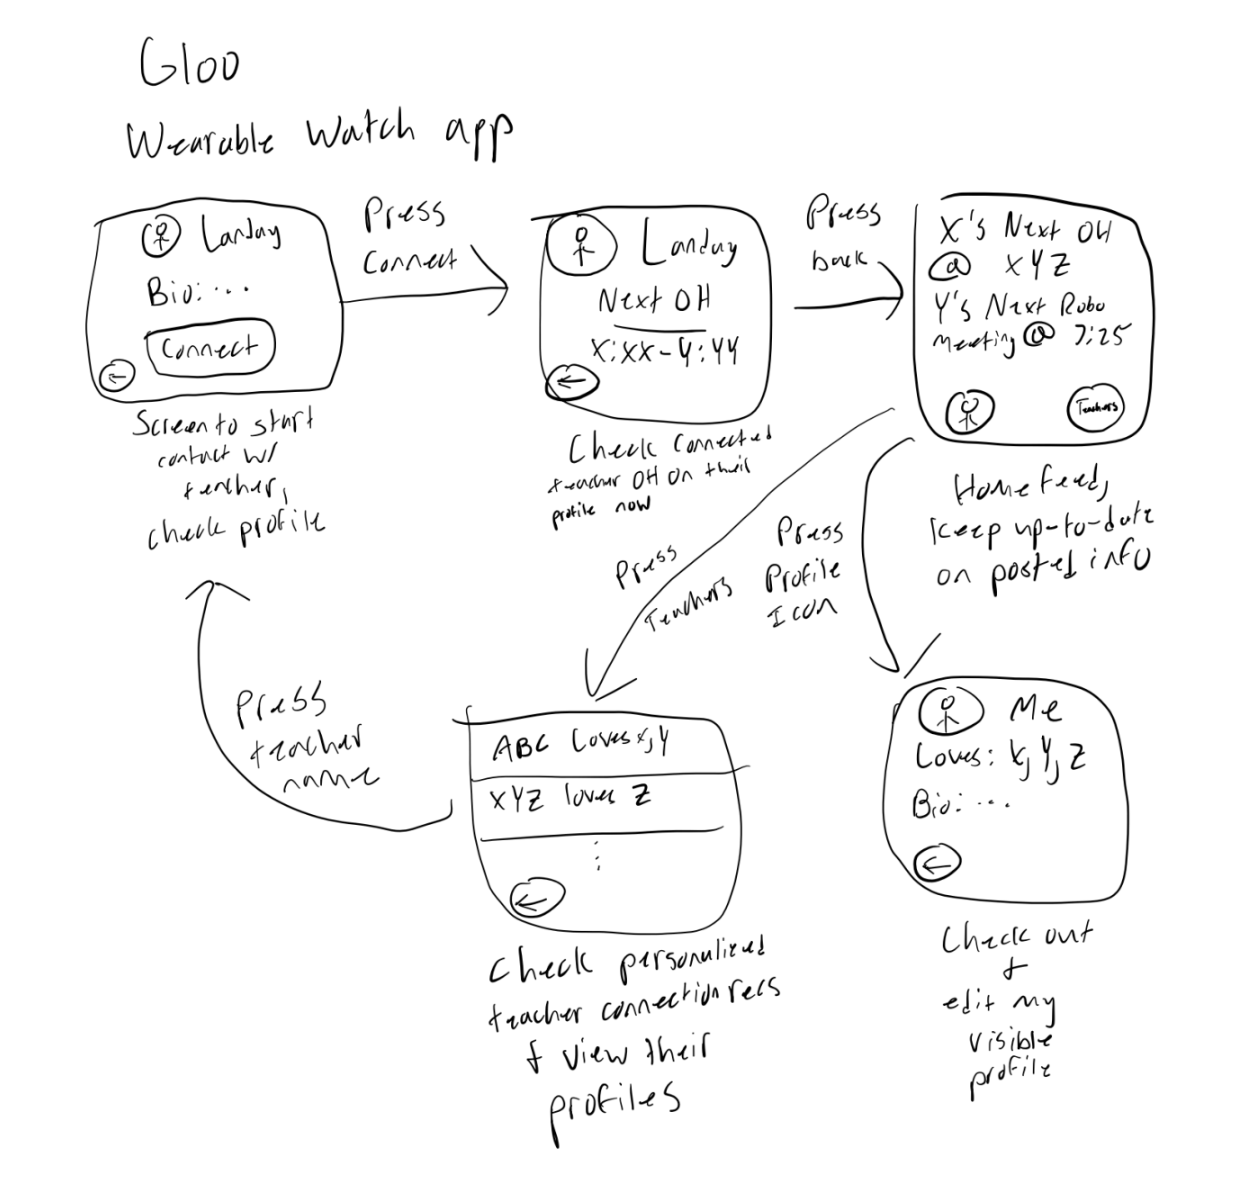 Gloo
Wearable Watch app
Landay
Bio: ...
Connect
Screen to start
contact w/
teacher,
check profile
Press
Connect
Landay
Next OH
X:XX-Y:YY
Check Connected
teacher OH on their
profile now
Press
back
X's Next OH
@ XYZ
Y's Next Robo
Meeting @ 7:25
Teachers
Home feed,
keep up-to-date
on posted info
Press
Teachers
Press
Profile
Icon
Press
teacher
name
ABC Loves X, Y
XYZ loves Z
Check personalized
teacher connection recs
& view their
profiles
Me
Loves: X, Y, Z
Bio: ...
Check out
&
edit my
visible
profile